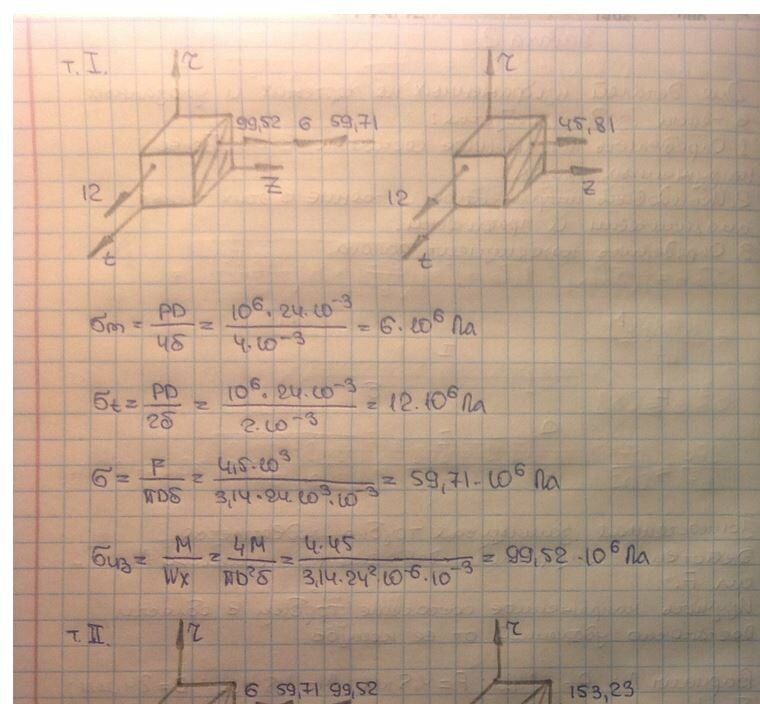 т. I.
τ
99,52 6 59,71
z
12
t
τ
45,81
z
12
t
σm = PD/4δ = 10⁶·24·10⁻³/4·10⁻³ = 6·10⁶ Па
σt = PD/2δ = 10⁶·24·10⁻³/2·10⁻³ = 12·10⁶ Па
σ = F/πDδ = 4,5·10³/3,14·24·10³·10⁻³ = 59,71·10⁶ Па
σиз = M/Wx = 4M/πD²δ = 4·45/3,14·24²·10⁻⁶·10⁻³ = 99,52·10⁶ Па
т. II.
τ
6 59,71 99,52
τ
153,23